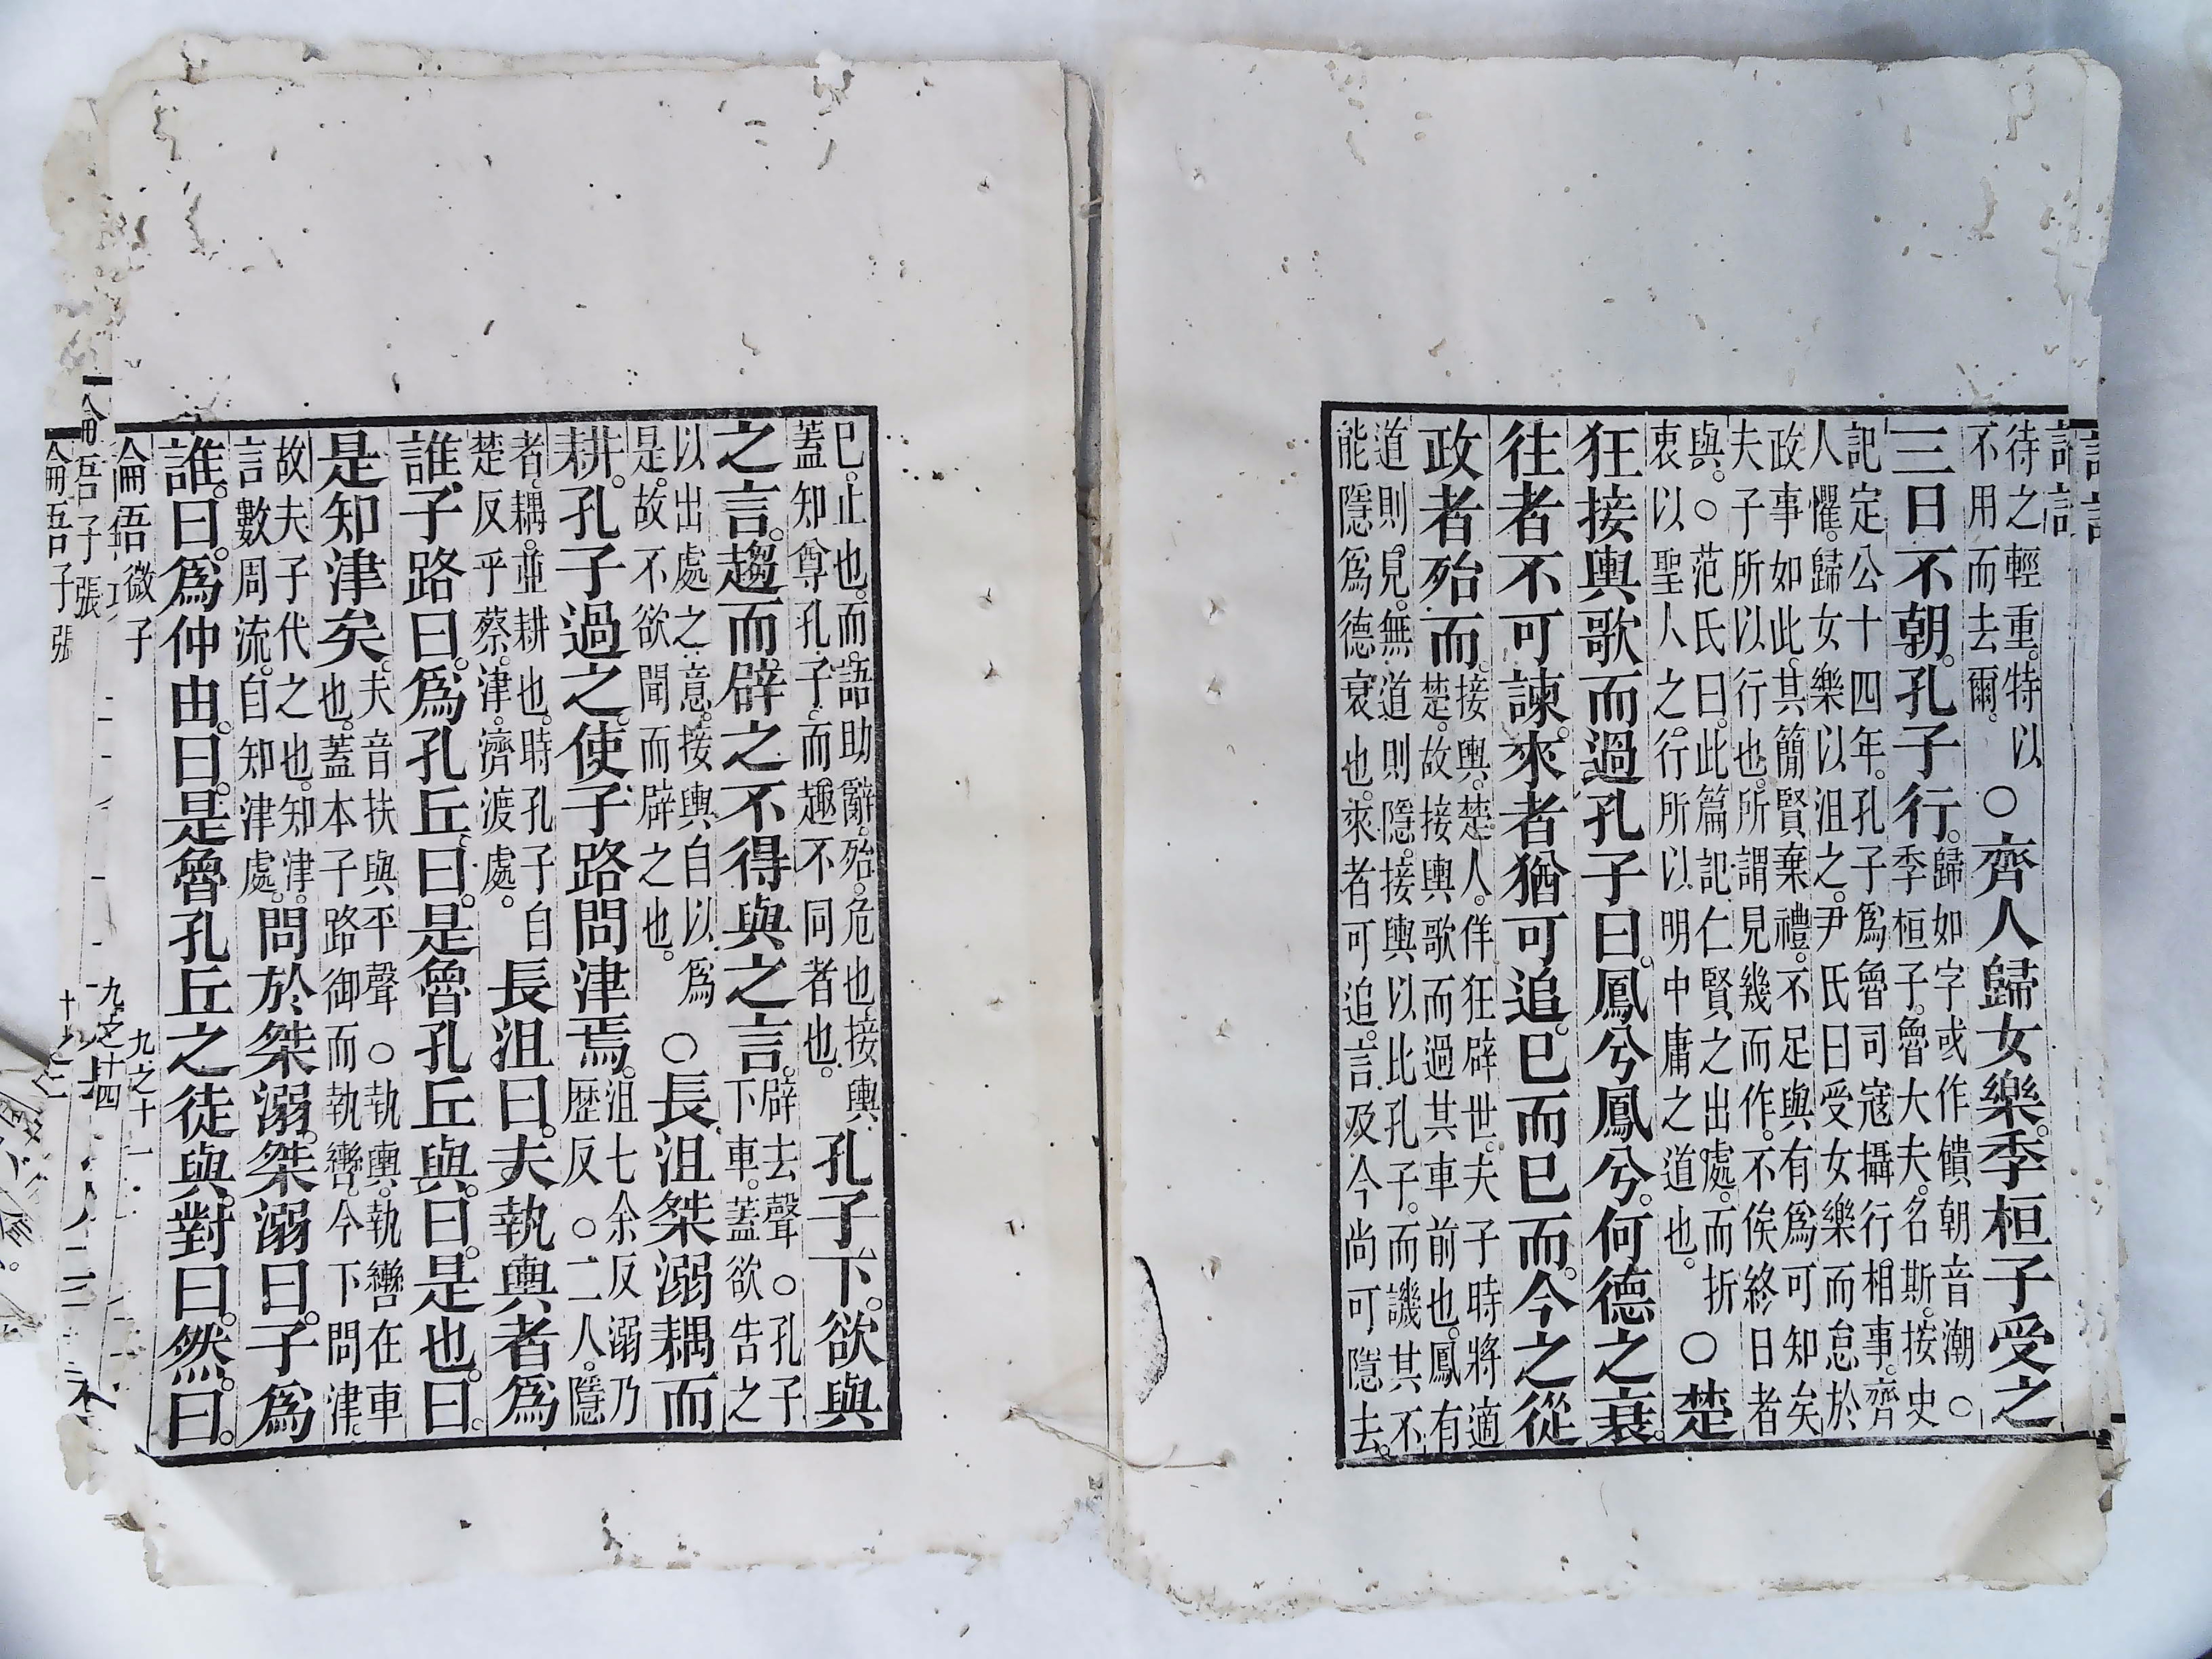 待之輕重。特以
不用而去爾。
○齊人歸女樂。季桓子受之
三日不朝。孔子行。
歸如字或作饋朝音潮○
季桓子。魯大夫。名斯。按史
記定公十四年。孔子爲魯司寇攝行相事。齊
人懼。歸女樂以沮之。尹氏曰受女樂而怠於
政事如此。其簡賢棄禮。不足與有爲可知矣
夫子所以行也。所謂見幾而作。不俟終日者
與。○范氏曰。此篇記仁賢之出處。而折
衷以聖人之行。所以明中庸之道也。
○楚
狂接輿歌而過孔子曰。鳳兮鳳兮。何德之衰。
往者不可諫。來者猶可追。已而已而。今之從
政者殆而。
接輿。楚人。佯狂辟世。夫子時將適
楚。故接輿歌而過其車前也。鳳有
道則見。無道則隱。接輿以比孔子。而譏其不
能隱爲德衰也。來者可追。言及今尚可隱去。
已。止也。而。語助辭。殆。危也。接輿
蓋知尊孔子。而趨不同者也。
孔子下。欲與
之言。趨而辟之。不得與之言。
辟去聲○孔子
下車。蓋欲告之
以出處之意。接輿自以爲
是。故不欲聞而辟之也。
○長沮桀溺耦而
耕。孔子過之。使子路問津焉。
沮七余反溺乃
歷反○二人。隱
者。耦。並耕也。時孔子自
楚反乎蔡。津。濟渡處。
長沮曰。夫執輿者爲
誰。子路曰。爲孔丘。曰。是魯孔丘與。曰。是也。曰。
是知津矣。
夫音扶與平聲○執輿。執轡在車
也。蓋本子路御而執轡。今下問津。
故夫子代之也。知津。
言數周流。自知津處。
問於桀溺。桀溺曰。子爲
誰。曰。爲仲由。曰。是魯孔丘之徒與。對曰。然。曰。
微子
九之十一
子張
九之十四
子張